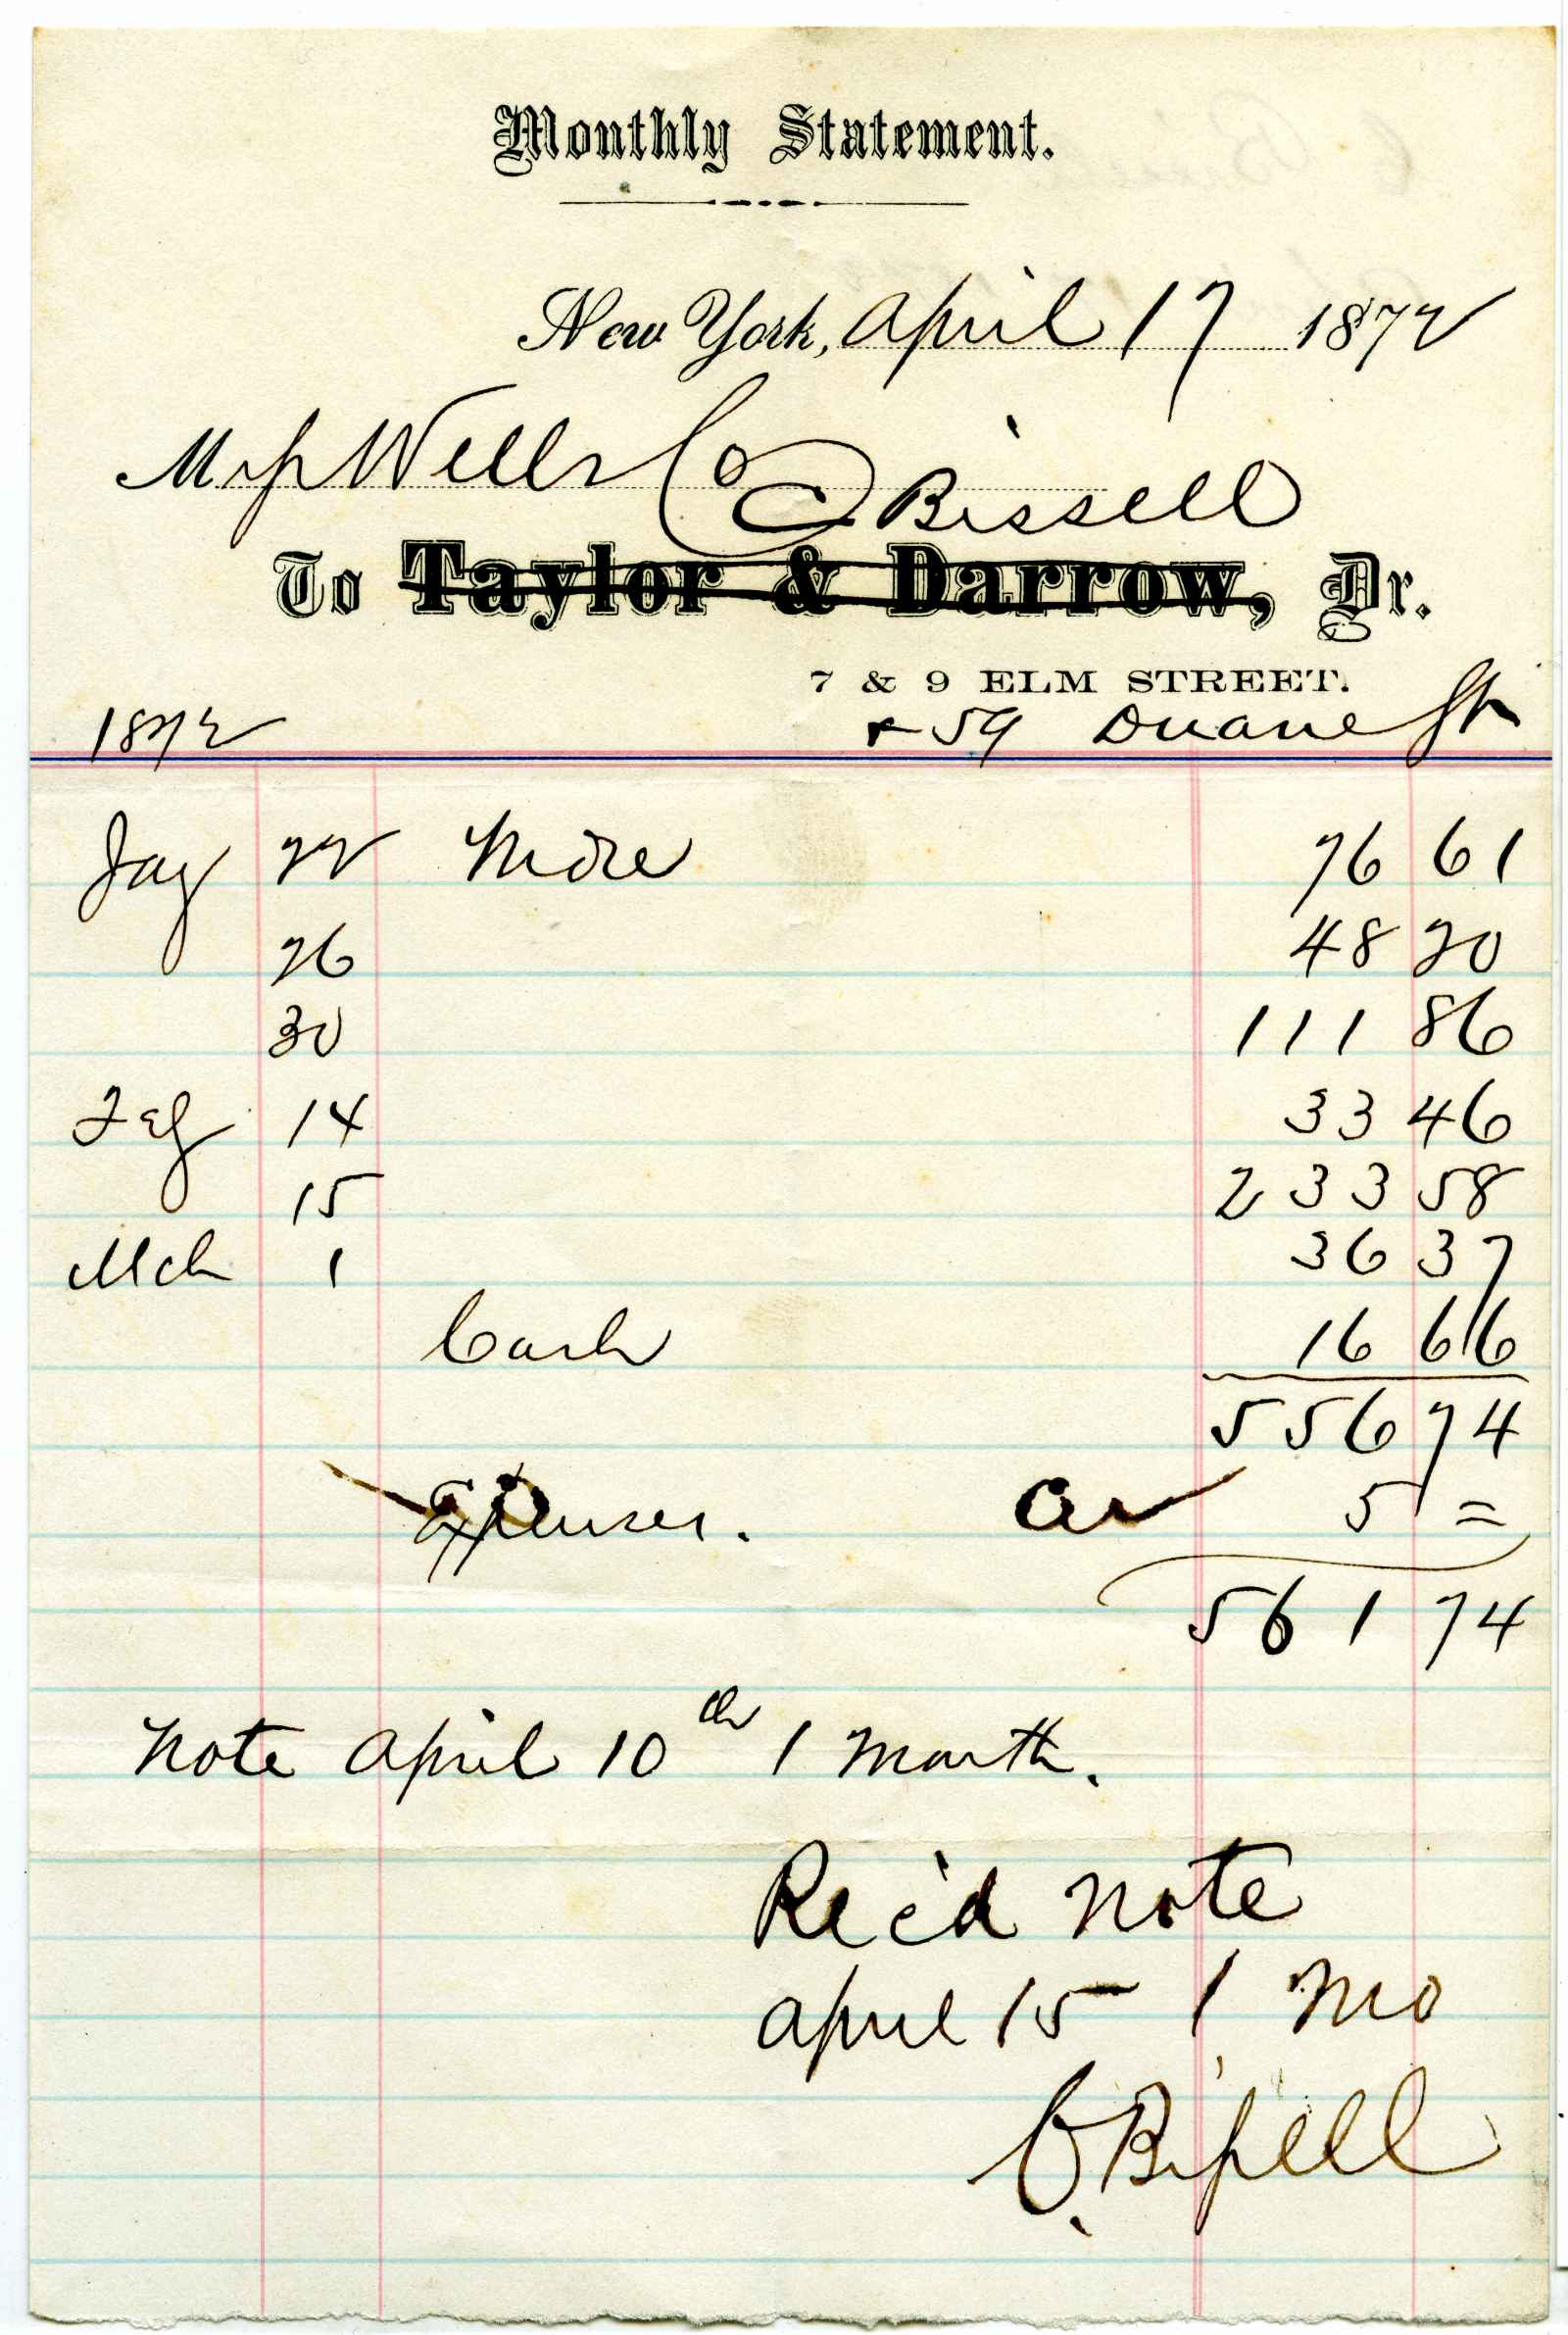 Monthly Statement.
New York, April 17 1872
Mess Wells & Co
C Bissell
To Taylor & Darrow, Dr.
7 & 9 ELM STREET.
1872 & 59 Duane St
Jay 22 Mdse 76 61
26 48 20
30 111 86
Feb 14 33 46
15 233 58
Mch 1 36 37
Cash 16 66
556 74
Expenses. 5 =
561 74
Note April 10th 1 Month.
Rec'd note
april 15 1 Mo
C. Bissell